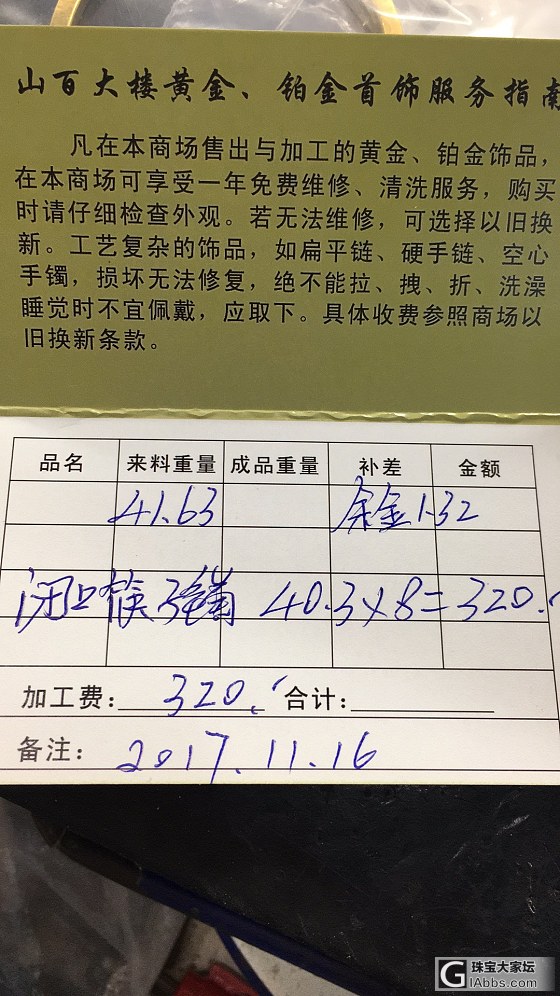 山百大楼黄金、铂金首饰服务指南
凡在本商场售出与加工的黄金、铂金饰品,
在本商场可享受一年免费维修、清洗服务,购买
时请仔细检查外观。若无法维修,可选择以旧换
新。工艺复杂的饰品,如扁平链、硬手链、空心
手镯,损坏无法修复,绝不能拉、拽、折、洗澡
睡觉时不宜佩戴,应取下。具体收费参照商场以
旧换新条款。
品名 来料重量 成品重量 补差 金额
41.63 余金1.32
闭口 镯 40.3×8=320.
加工费: 320. 合计:
备注: 2017.11.16
G 珠宝大家坛
GIAbbs.com